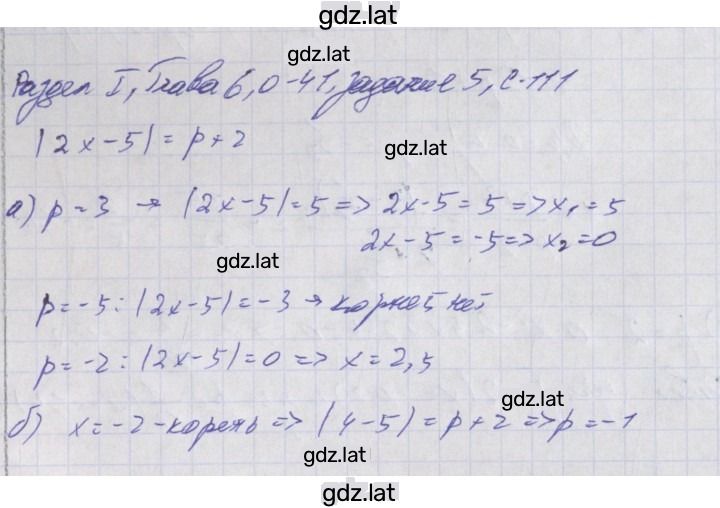 gdz.lat
gdz.lat
Раздел I, Глава 6, О-41, задание 5, с.111
|2x-5| = p+2
gdz.lat
а) p = 3 → |2x-5| = 5 => 2x-5 = 5 => x₁ = 5
2x-5 = -5 => x₂ = 0
gdz.lat
p = -5 : |2x-5| = -3 → корней нет
p = -2 : |2x-5| = 0 => x = 2,5
gdz.lat
б) x = -2 - корень => |4-5| = p+2 => p = -1
gdz.lat
gdz.lat